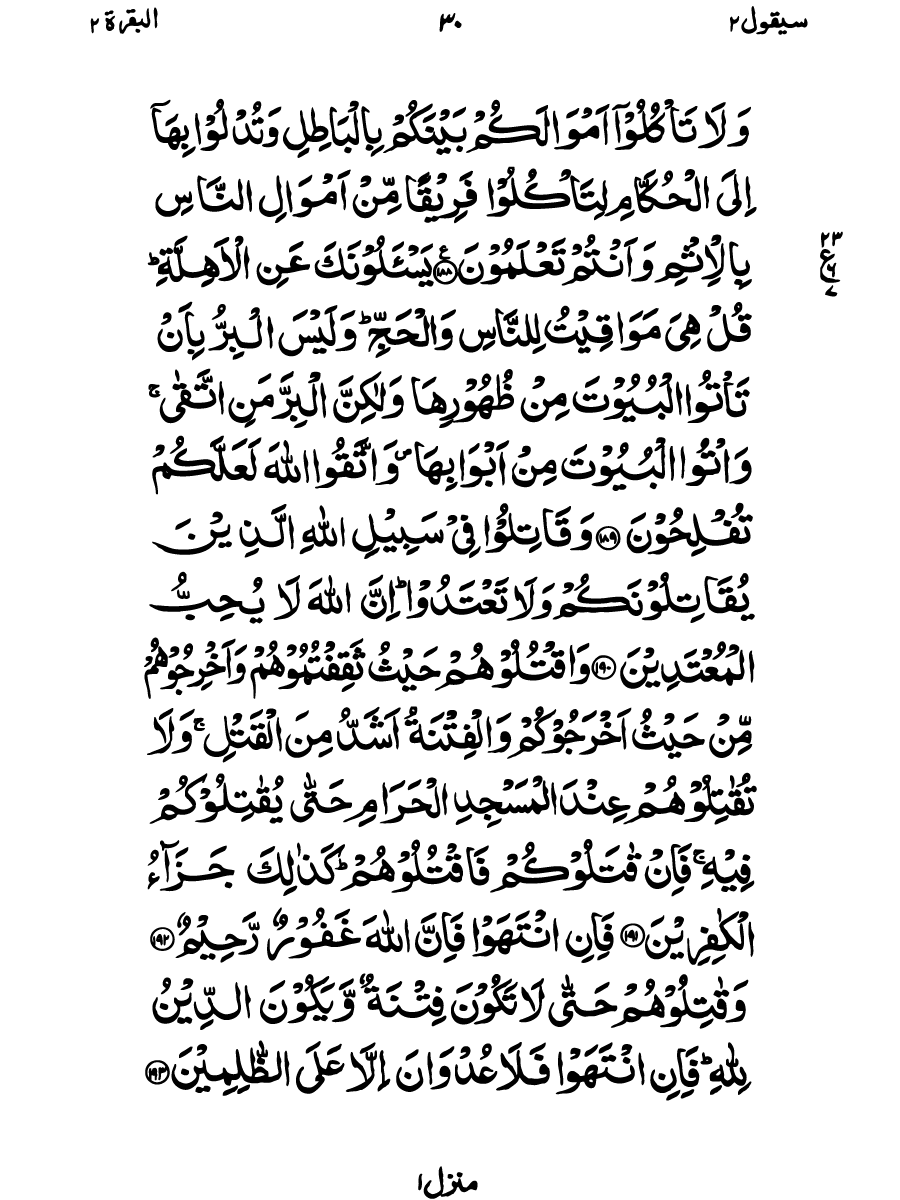 سيقول ٢
٣٠
البقرة ٢
وَلَا تَاْكُلُوْۤا اَمْوَالَكُمْ بَيْنَكُمْ بِالْبَاطِلِ وَتُدْلُوْا بِهَاۤ
اِلَى الْحُكَّامِ لِتَاْكُلُوْا فَرِيْقًا مِّنْ اَمْوَالِ النَّاسِ
بِالْاِثْمِ وَاَنْتُمْ تَعْلَمُوْنَ ﴿۱۸۸﴾ يَسْـَٔلُوْنَكَ عَنِ الْاَهِلَّةِ ؕ
٢٣
ع
٦
٧
قُلْ هِيَ مَوَاقِيْتُ لِلنَّاسِ وَالْحَجِّ ؕ وَلَيْسَ الْبِرُّ بِاَنْ
تَاْتُوا الْبُيُوْتَ مِنْ ظُهُوْرِهَا وَلٰكِنَّ الْبِرَّ مَنِ اتَّقٰى ۚ
وَاْتُوا الْبُيُوْتَ مِنْ اَبْوَابِهَا ۪ وَاتَّقُوا اللّٰهَ لَعَلَّكُمْ
تُفْلِحُوْنَ ﴿۱۸۹﴾ وَقَاتِلُوْا فِيْ سَبِيْلِ اللّٰهِ الَّذِيْنَ
يُقَاتِلُوْنَكُمْ وَلَا تَعْتَدُوْا ؕ اِنَّ اللّٰهَ لَا يُحِبُّ
الْمُعْتَدِيْنَ ﴿۱۹۰﴾ وَاقْتُلُوْهُمْ حَيْثُ ثَقِفْتُمُوْهُمْ وَاَخْرِجُوْهُمْ
مِّنْ حَيْثُ اَخْرَجُوْكُمْ وَالْفِتْنَةُ اَشَدُّ مِنَ الْقَتْلِ ۚ وَلَا
تُقٰتِلُوْهُمْ عِنْدَ الْمَسْجِدِ الْحَرَامِ حَتّٰى يُقٰتِلُوْكُمْ
فِيْهِ ۚ فَاِنْ قٰتَلُوْكُمْ فَاقْتُلُوْهُمْ ؕ كَذٰلِكَ جَزَآءُ
الْكٰفِرِيْنَ ﴿۱۹۱﴾ فَاِنِ انْتَهَوْا فَاِنَّ اللّٰهَ غَفُوْرٌ رَّحِيْمٌ ﴿۱۹۲﴾
وَقٰتِلُوْهُمْ حَتّٰى لَا تَكُوْنَ فِتْنَةٌ وَّيَكُوْنَ الدِّيْنُ
لِلّٰهِ ؕ فَاِنِ انْتَهَوْا فَلَا عُدْوَانَ اِلَّا عَلَى الظّٰلِمِيْنَ ﴿۱۹۳﴾
منزل ١